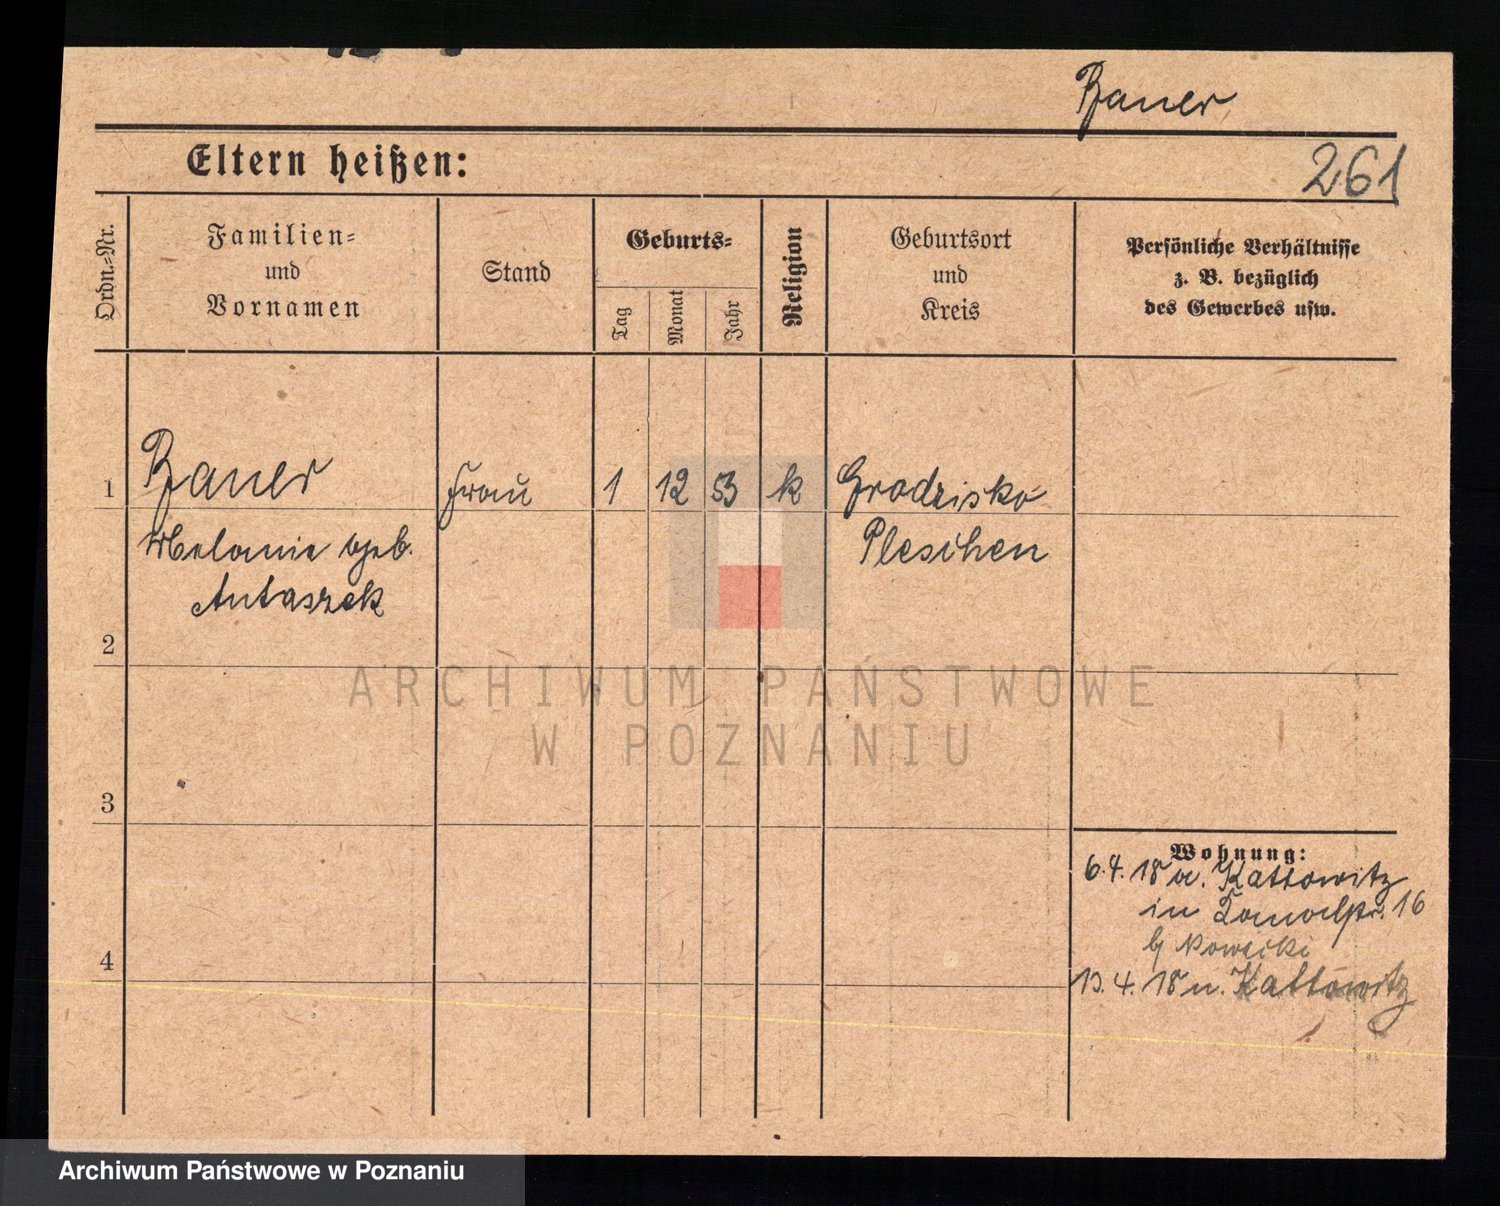 Bauer
Eltern heißen:
261
Ordn.-Nr.
Familien-
und
Vornamen
Stand
Geburts-
Tag
Monat
Jahr
Religion
Geburtsort
und
Kreis
Persönliche Verhältnisse
z. B. bezüglich
des Gewerbes usw.
1
Bauer
Frau
1
12
53
k
Grodzisko
Melanie geb.
Pleschen
Antaszek
2
ARCHIWUM PAŃSTWOWE
W POZNANIU
3
Wohnung:
6.4.18 v. Kattowitz
in 16
b/ Nowicki
4
13.4.18 n. Kattowitz
Archiwum Państwowe w Poznaniu